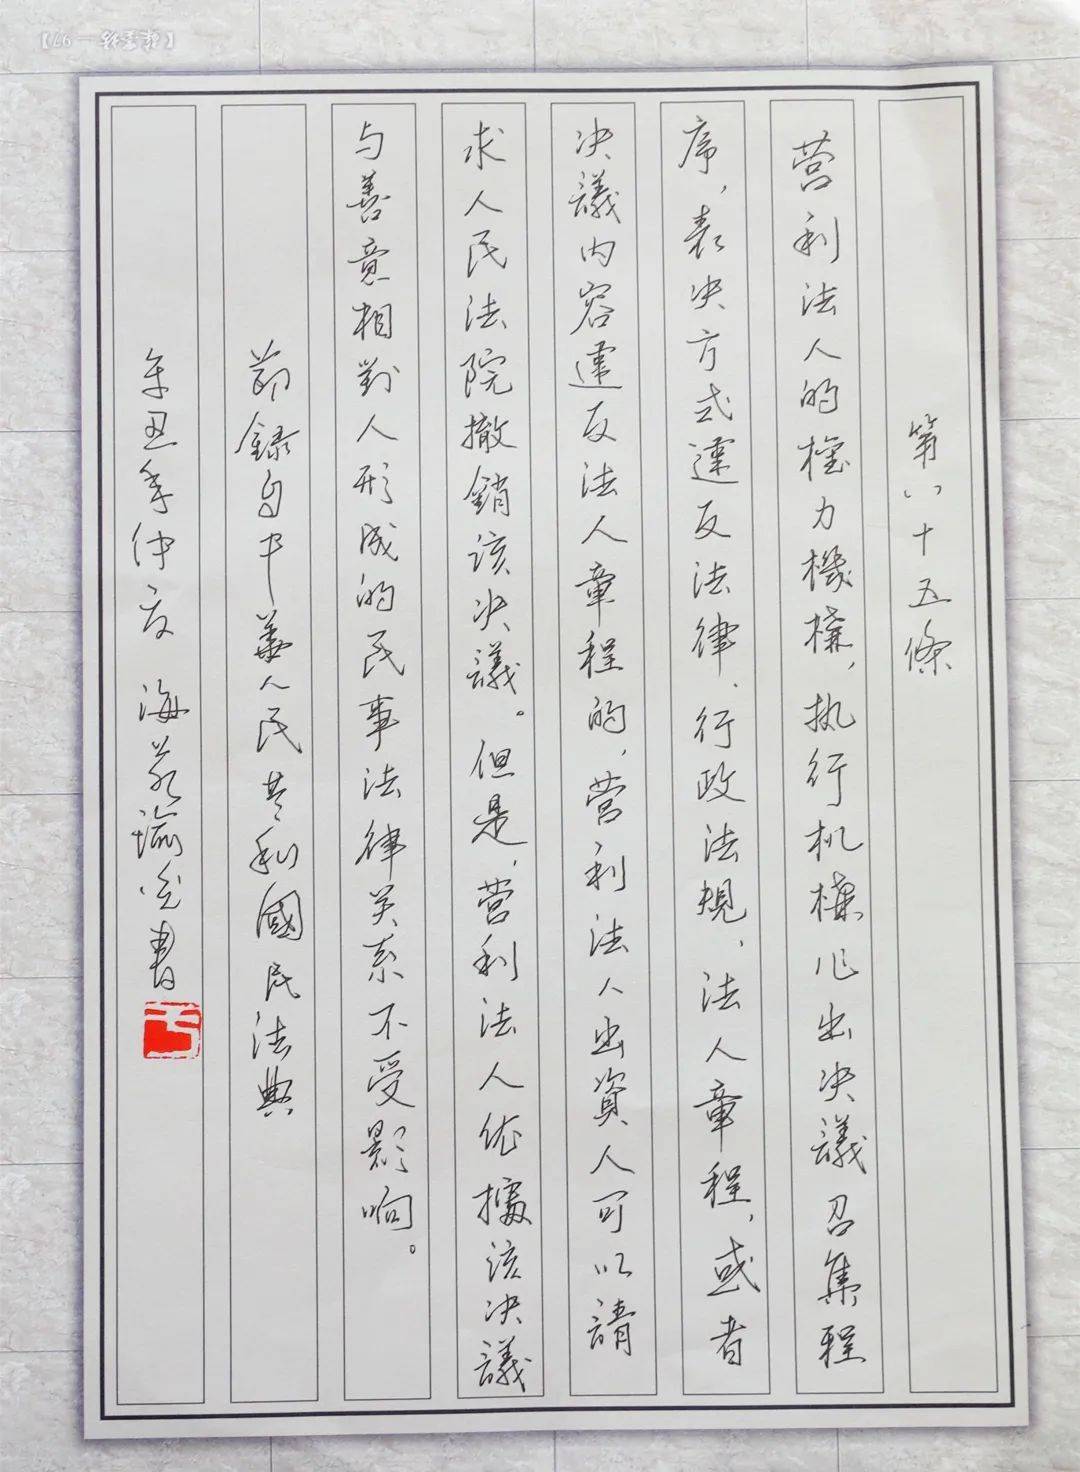 第八十五條
营利法人的權力機構，执行机構作出决議召集程
序，表决方式違反法律、行政法規、法人章程，或者
决議内容違反法人章程的，营利法人出資人可以請
求人民法院撤銷該决議。但是，营利法人依據該决議
与善意相對人形成的民事法律关系不受影响。
節録自中華人民共和國民法典
辛丑年仲夏 海 書